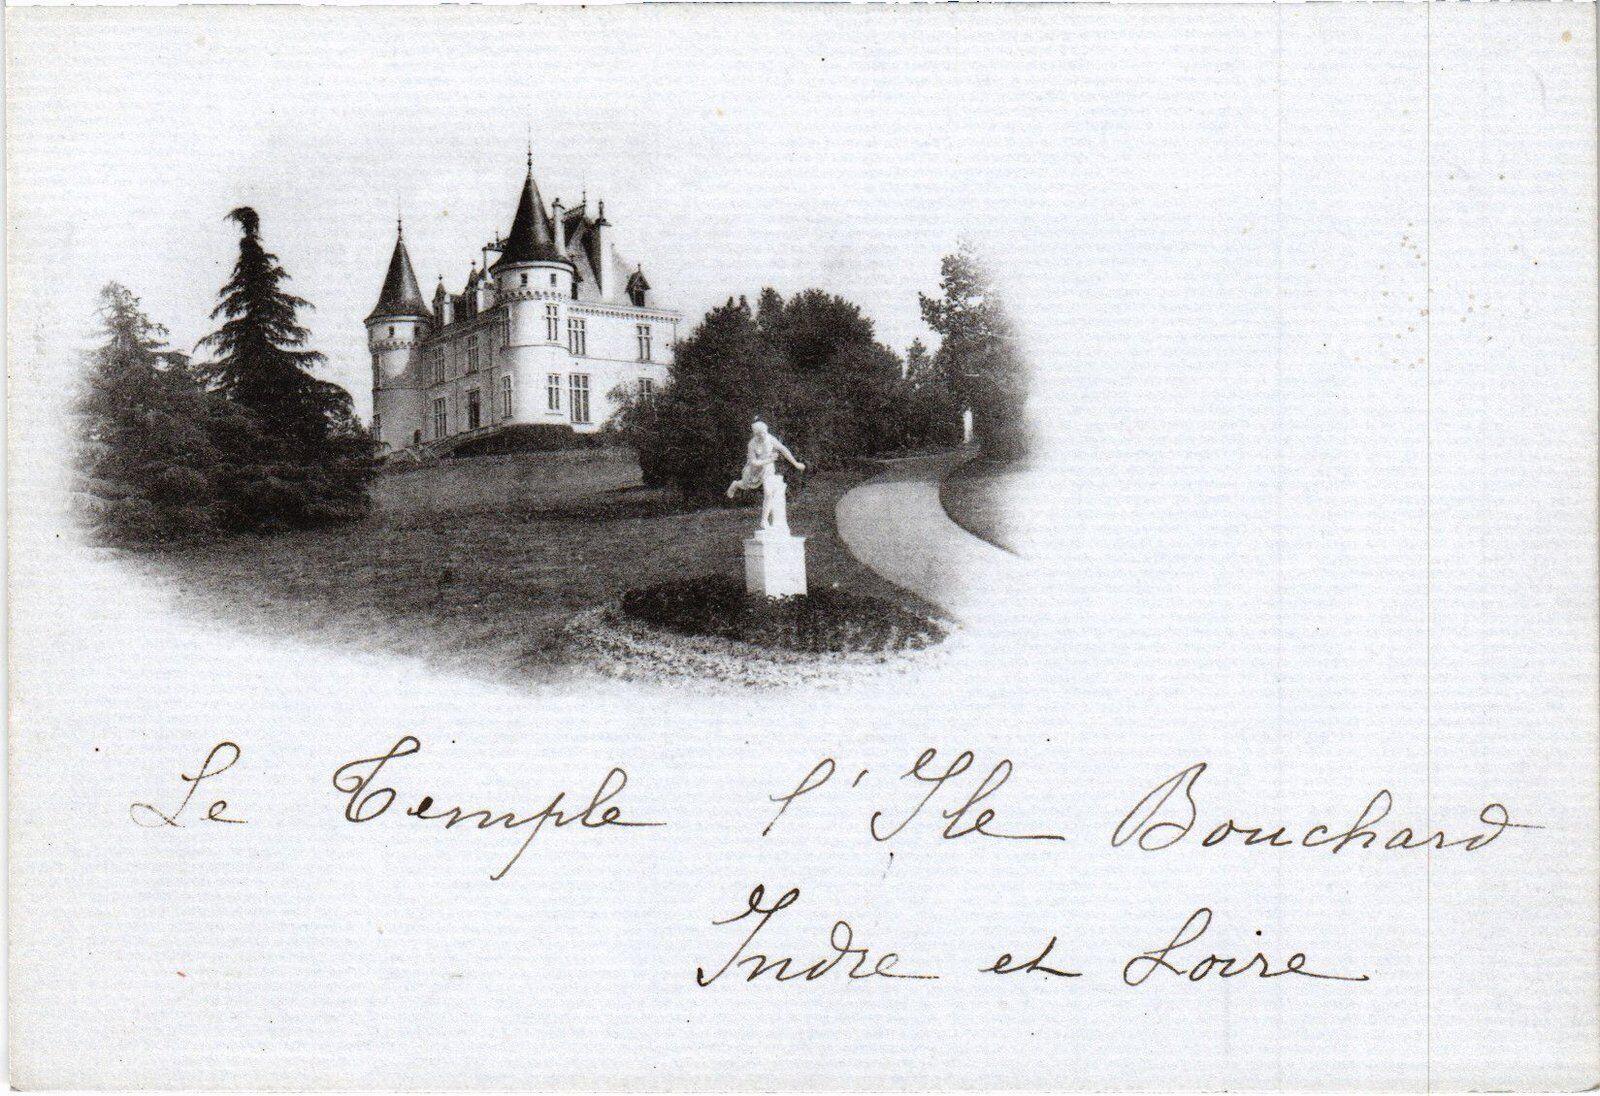 Le Temple l'Ile Bouchard
Indre et Loire